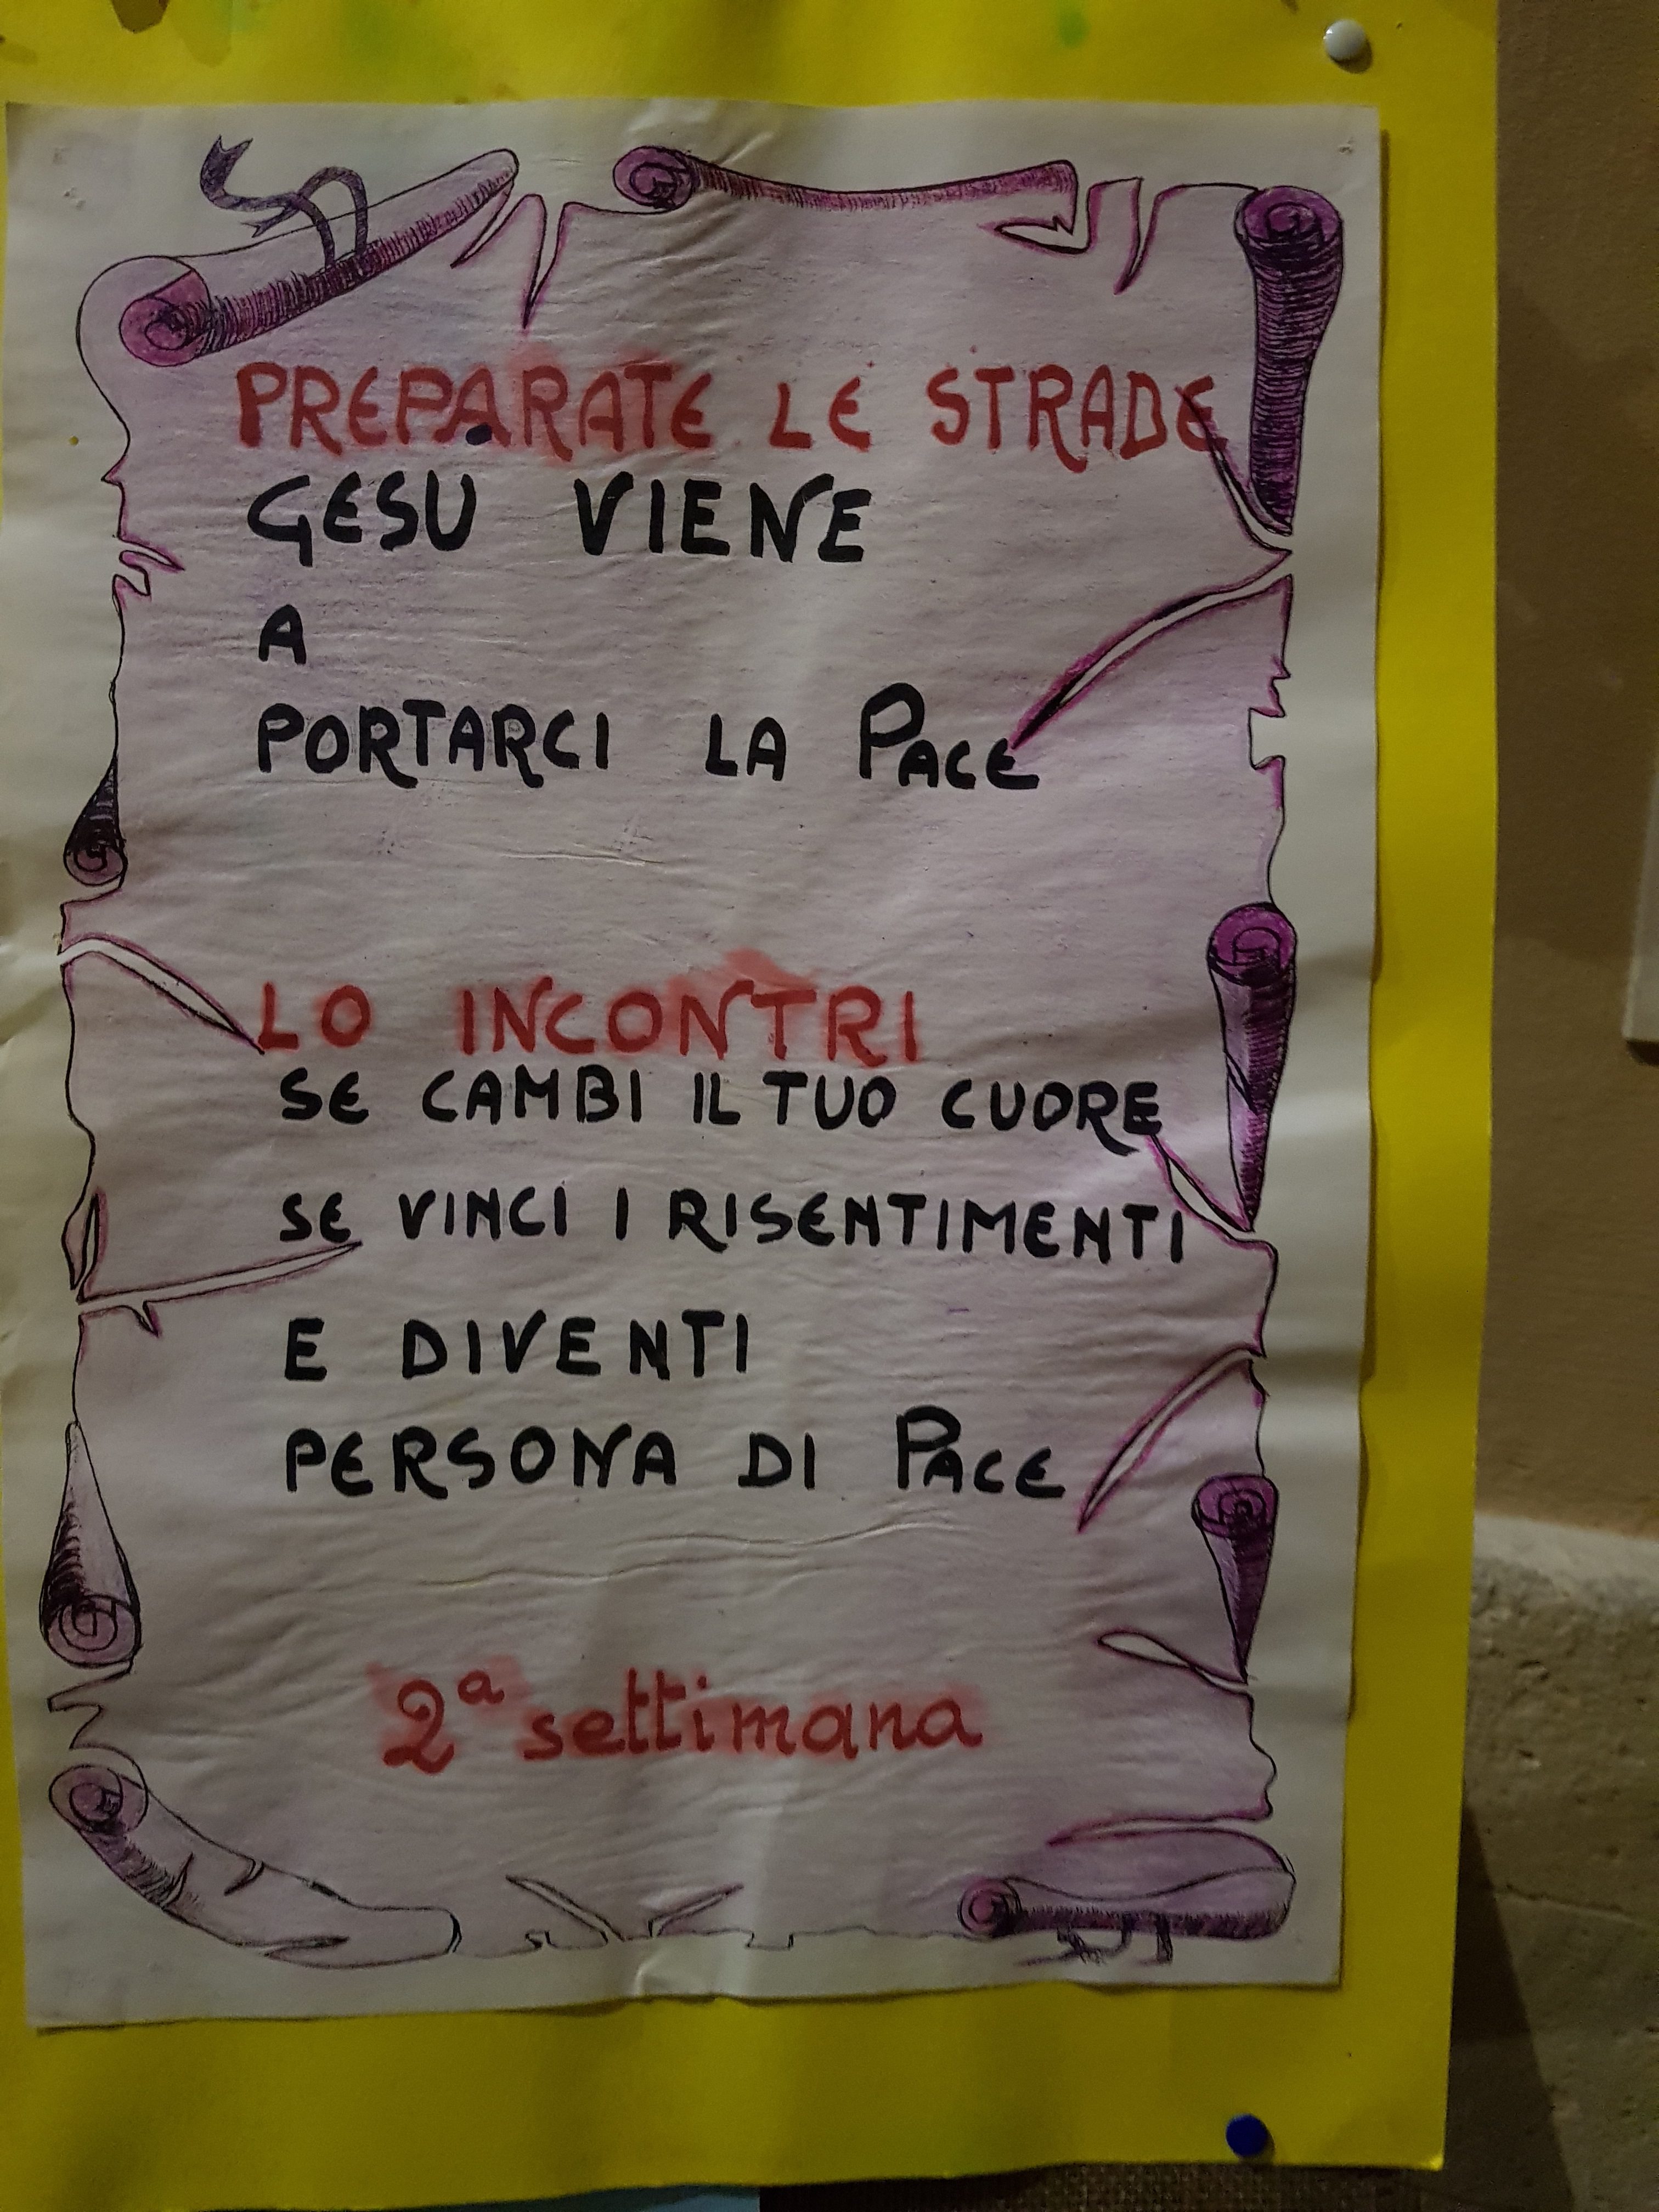 PREPARATE LE STRADE
GESU VIENE
A
PORTARCI LA PACE
LO INCONTRI
SE CAMBI IL TUO CUORE
SE VINCI I RISENTIMENTI
E DIVENTI
PERSONA DI PACE
2ª settimana